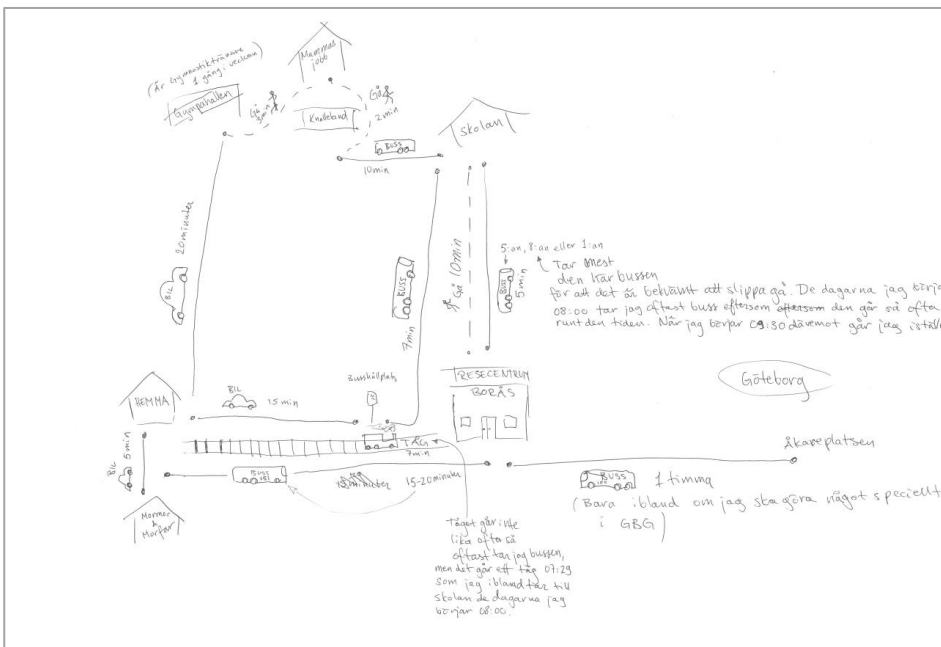 (Är Gymnastiktränare
1 gång i veckan)
Gympahallen
Gå
3min
Mammas
jobb
Knalleland
Gå
2 min
BUSS
10min
Skolan
20minuter
BIL
BUSS
7min
Gå 10min
BUSS
5 min
5:an, 8:an eller 1:an
Tar mest
den här bussen
för att det är bekvämt att slippa gå. De dagarna jag börja
08:00 tar jag oftast buss eftersom den går så ofta
runt den tiden. När jag börjar 09:30 däremot går jag istäl
HEMMA
BIL
15 min
Busshållplats
RESECENTRUM
BORÅS
TÅG
7min
BIL
5min
Mormor
&
Morfar
BUSS
15-20minuter
Göteborg
Åkareplatsen
BUSS
100
1 timma
(Bara ibland om jag ska göra något speciellt
i GBG)
Tåget går inte
lika ofta så
oftast tar jag bussen,
men det går ett tåg 07:29
som jag ibland tar till
skolan de dagarna jag
börjar 08:00.